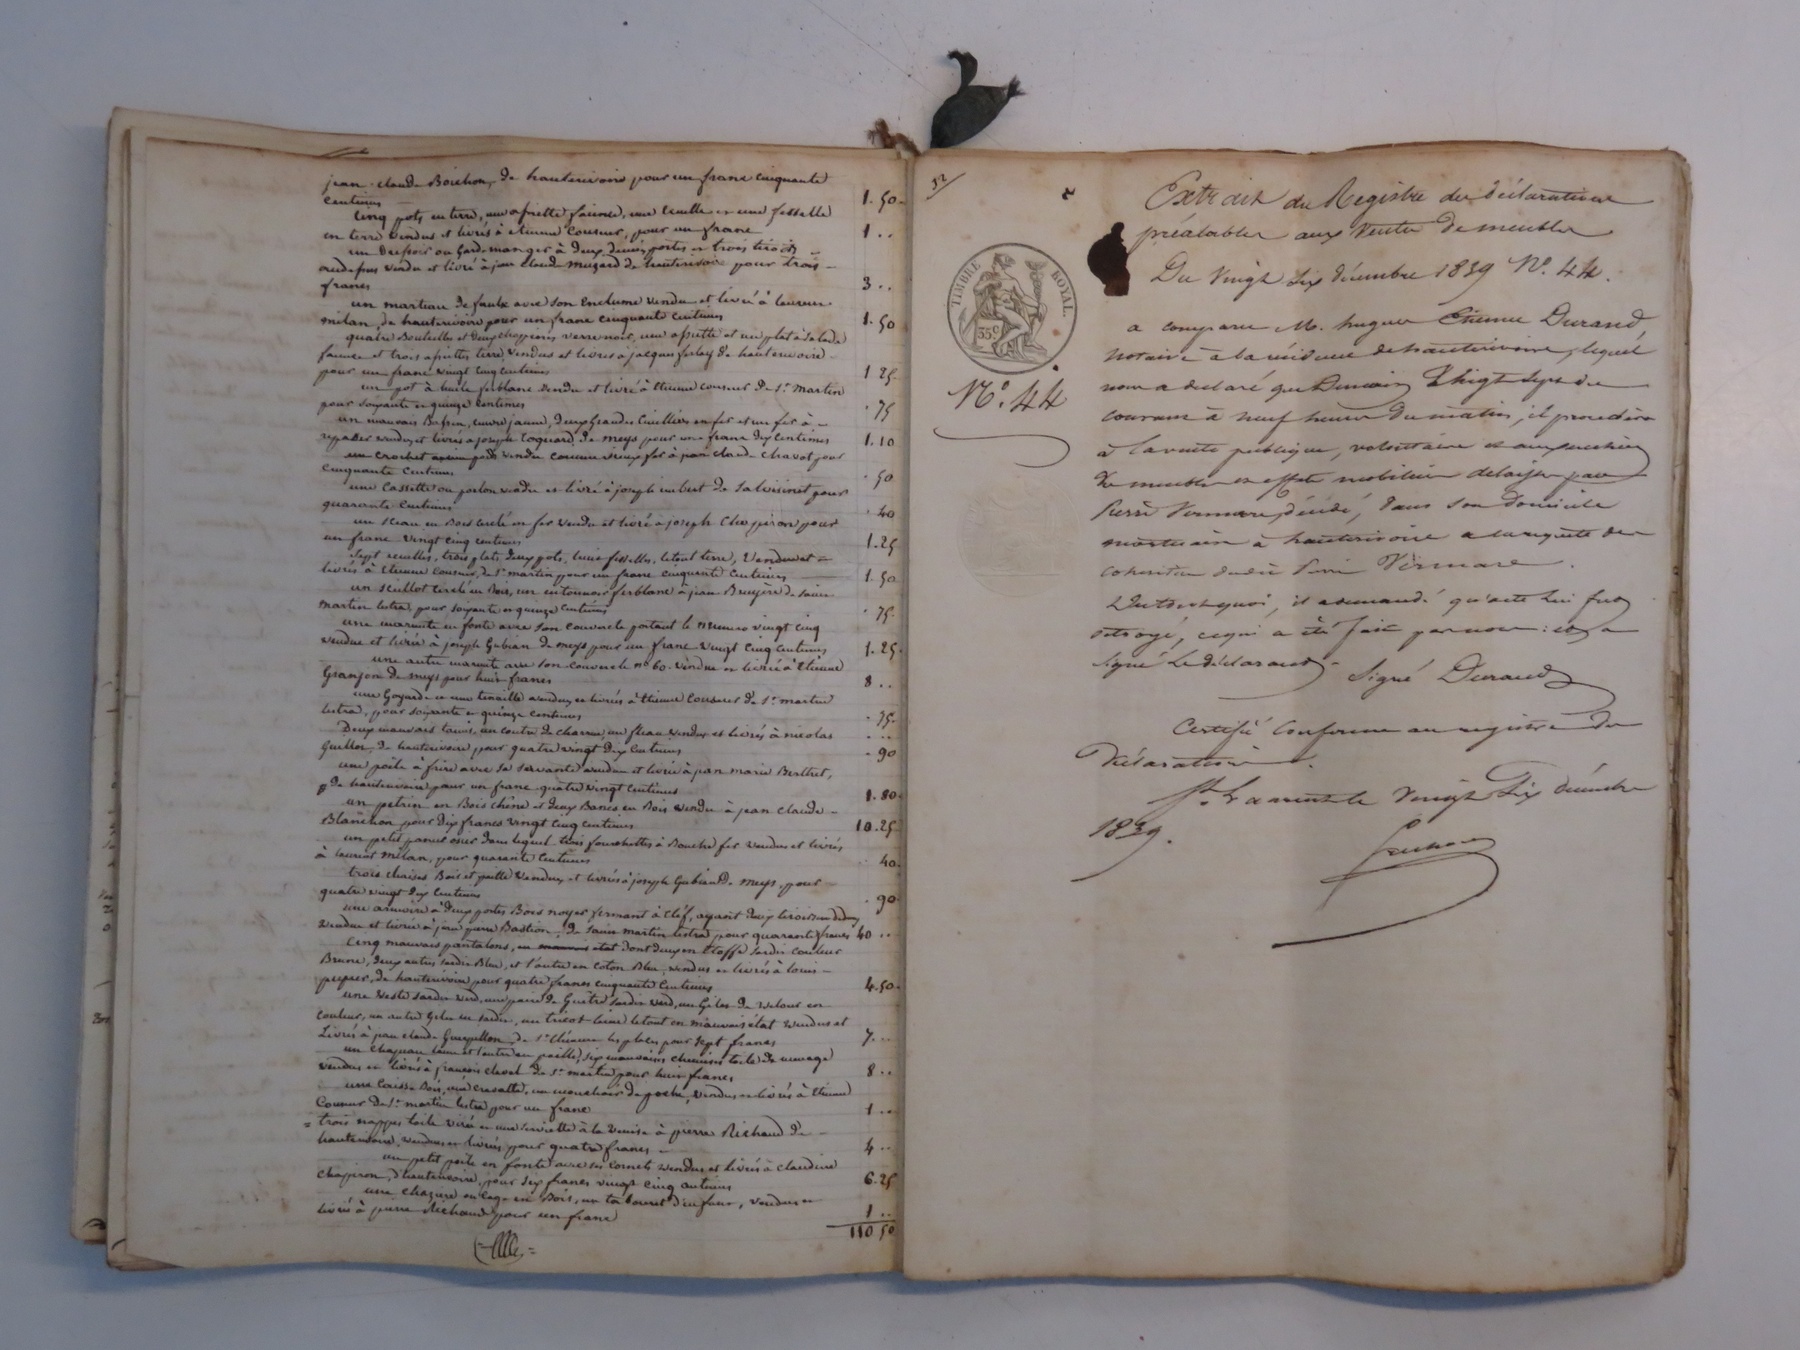 jean-claude Boichon, de hauterivoire pour un franc cinquante
centimes 1.50
Cinq pots en terre, une assiette faïence, une écuelle et une fesselle
en terre vendus et livrés à etienne Couseur, pour un franc 1 ..
un dressoir ou Gardemanger à deux demi portes et trois tiroirs
au dessus vendu et livré à jean Claude Mugard de hauterivoire pour trois
francs 3 ..
un marteau de faulx avec son Enclume vendu et livré à laurent
milan, de hauterivoire pour un franc cinquante centimes 1.50
quatre Bouteilles et deux choppines verre noir, une assiette et un plat à salade
faïence et trois assiettes terre, Vendus et livrés à jacques de hauterivoire
pour un franc vingt cinq centimes 1 25
un pot à huile ferblanc vendu et livré à Etienne Couseur de St. Martin
pour soixante et quinze centimes . 75
un mauvais Bassin, cuivre jaune, deux grandes Cuillères en fer et un fer à
repasser vendus et livrés à joseph Coquard, de meys pour un franc dix centimes 1.10
un crochet vendu comme vieux fer à jean claude Chavot pour
cinquante centimes . 50
une Cassette ou poelon vendue et livrée à joseph imbert de pour
quarante centimes . 40
un sceau en Bois cerclé en fer vendu et livré à joseph Chapiron pour
un franc vingt cinq centimes 1.25
Sept écuelles, trois plats deux pots, trois fesselles, le tout terre, Vendus et
livrés à Etienne Couseur, de St. martin pour un franc cinquante Centimes 1.50
un seillot cerclé en Bois, un entonnoir ferblanc à jean Bruyère de Saint
Martin lestra, pour soixante et quinze centimes . 75.
une marmite en fonte avec son Couvercle portant le numero vingt cinq
vendue et livrée à joseph Gubian de meys pour un franc vingt cinq Centimes 1.25
une autre marmite avec son Couvercle no. 60. vendue et livrée à Etienne
Granjon de meys pour huit francs 8 ..
une Goyarde et une tenaille vendues et livrées à Etienne Couseur de St. martin
lestra, pour soixante et quinze centimes . 75.
Deux mauvais tamis, un coutre de charrue, un fleau vendus et livrés à nicolas
Guillon, de hauterivoire pour quatre vingt dix centimes . 90
une poële à frire avec sa servante vendue et livrée à jean marie Berthet,
de hauterivoire pour un franc quatre vingt Centimes 1.80
un pétrin en Bois chêne et deux Bancs en Bois vendu à jean claude
Blanchon pour dix francs vingt cinq centimes 10.25
un petit panier osier dans lequel trois fourchettes à Bouche fer vendus et livrés
à laurent Milan, pour quarante Centimes 40
trois chaises Bois et paille Vendues et livrées à joseph Gubian de Meys, pour
quatre vingt dix Centimes . 90
une armoire à deux portes Bois noyer fermant à clef, ayant deux tiroirs au dedans
vendue et livrée à jean pierre Bastion, de Saint martin lestra pour quarante francs 40 ..
Cinq mauvais pantalons, en mauvais etat dont deux en Etoffe sardis couleur
Brune, deux autres sardis Bleu, et l'autre en coton Bleu, vendus et livrés à louis
de hauterivoire pour quatre francs cinquante Centimes 4.50
une Veste sardis verd, une paire de Guêtre sardis verd, un Gilet de velour en
couleur, un autre Gilet en sardis, un tricot laine le tout en mauvais état vendus et
Livrés à jean claude de St. les places pour sept francs 7 ..
un chapeau laine et l'autre en paille, six mauvaises chemises toile de menage
vendus et livrés à françois clavel de St. martin pour huit francs 8 ..
une Caisse Bois, une cravatte, un mouchoir de poche, vendus et livrés à Etienne
Couseur de St. martin lestra pour un franc 1 ..
trois nappes toile et une serviette à la Venise à pierre Richaud de
hauterivoire, vendues et livrées pour quatre francs 4 ..
un petit poële en fonte avec ses Cornets vendus et livrés à claudine
Chapiron, d'hauterivoire, pour six francs vingt cinq centimes 6.25
une chazière ou cage en Bois, un tabouret d'enfant, vendus et
livrés à pierre Richaud pour un franc 1 ..
110 50
52
Extrait du Registre des déclarations
préalables aux Ventes de meubles
Du Vingt six décembre 1839 No. 44.
TIMBRE ROYAL.
35c.
No. 44
a comparu M. hugues Etienne Durand,
notaire à la résidence de hauterivoire, lequel
nous a déclaré que Demain Vingt sept du
courant à neuf heures du matin, il procédera
à la vente publique, volontaire et aux enchères
des meubles et effets mobiliers délaissés par
Pierre Vermare, décédé, dans son Domicile
mortuaire à hauterivoire a la requête des
cohéritiers dudit Pierre Vermare.
De tout quoi, il a demandé qu'acte lui fut
octroyé, ce qui a été fait par nous : et a
signé le déclarant. Signé Durand
Certifié Conforme au registre des
Déclarations.
St. Laurent le Vingt Six décembre
1839.